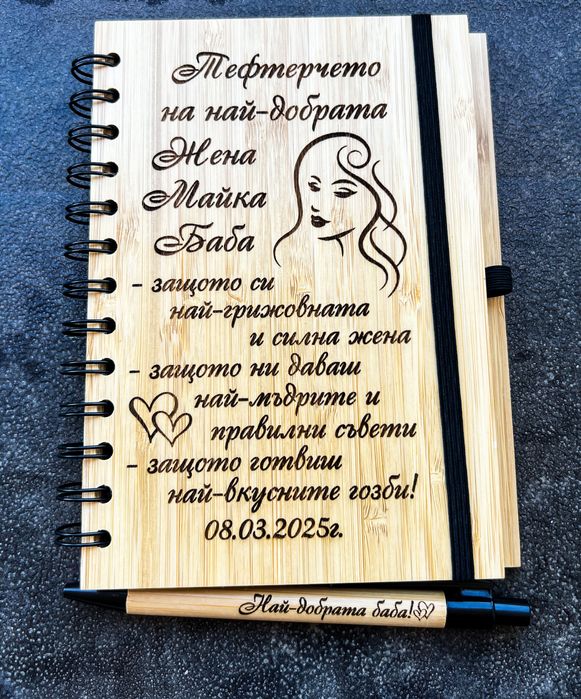 Тефтерчето
на най-добрата
Жена
Майка
Баба
- защото си
най-грижовната
и силна жена
- защото ни даваш
най-мъдрите и
правилни съвети
- защото готвиш
най-вкусните гозби!
08.03.2025г.
Най-добрата баба!